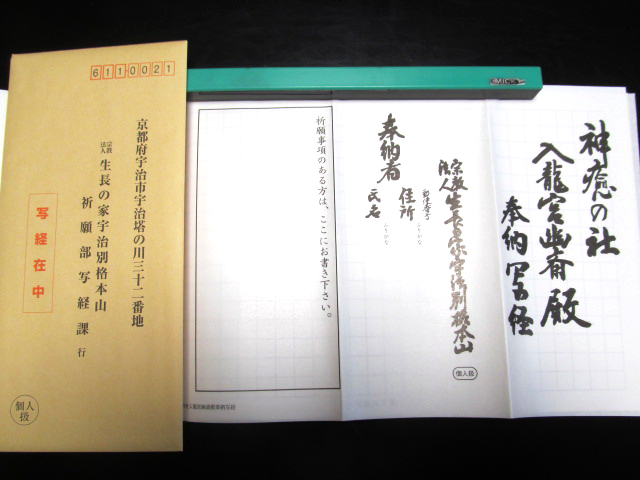 6110021
京都府宇治市宇治塔の川三十二番地
宗教法人 生長の家宇治別格本山
祈願部写経課 行
写経在中
個人扱
神癒の社
入龍宮幽斎殿
奉納写経
宗教法人 生長の家宇治別格本山
個人扱
奉納者
郵便番号
住所
ふりがな
氏名
ふりがな
祈願事項のある方は、ここにお書き下さい。